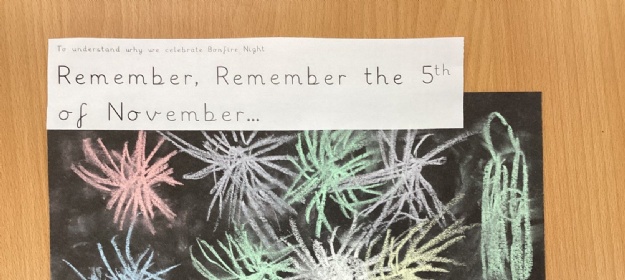 To understand why we celebrate Bonfire Night
Remember, Remember the 5th
of November...